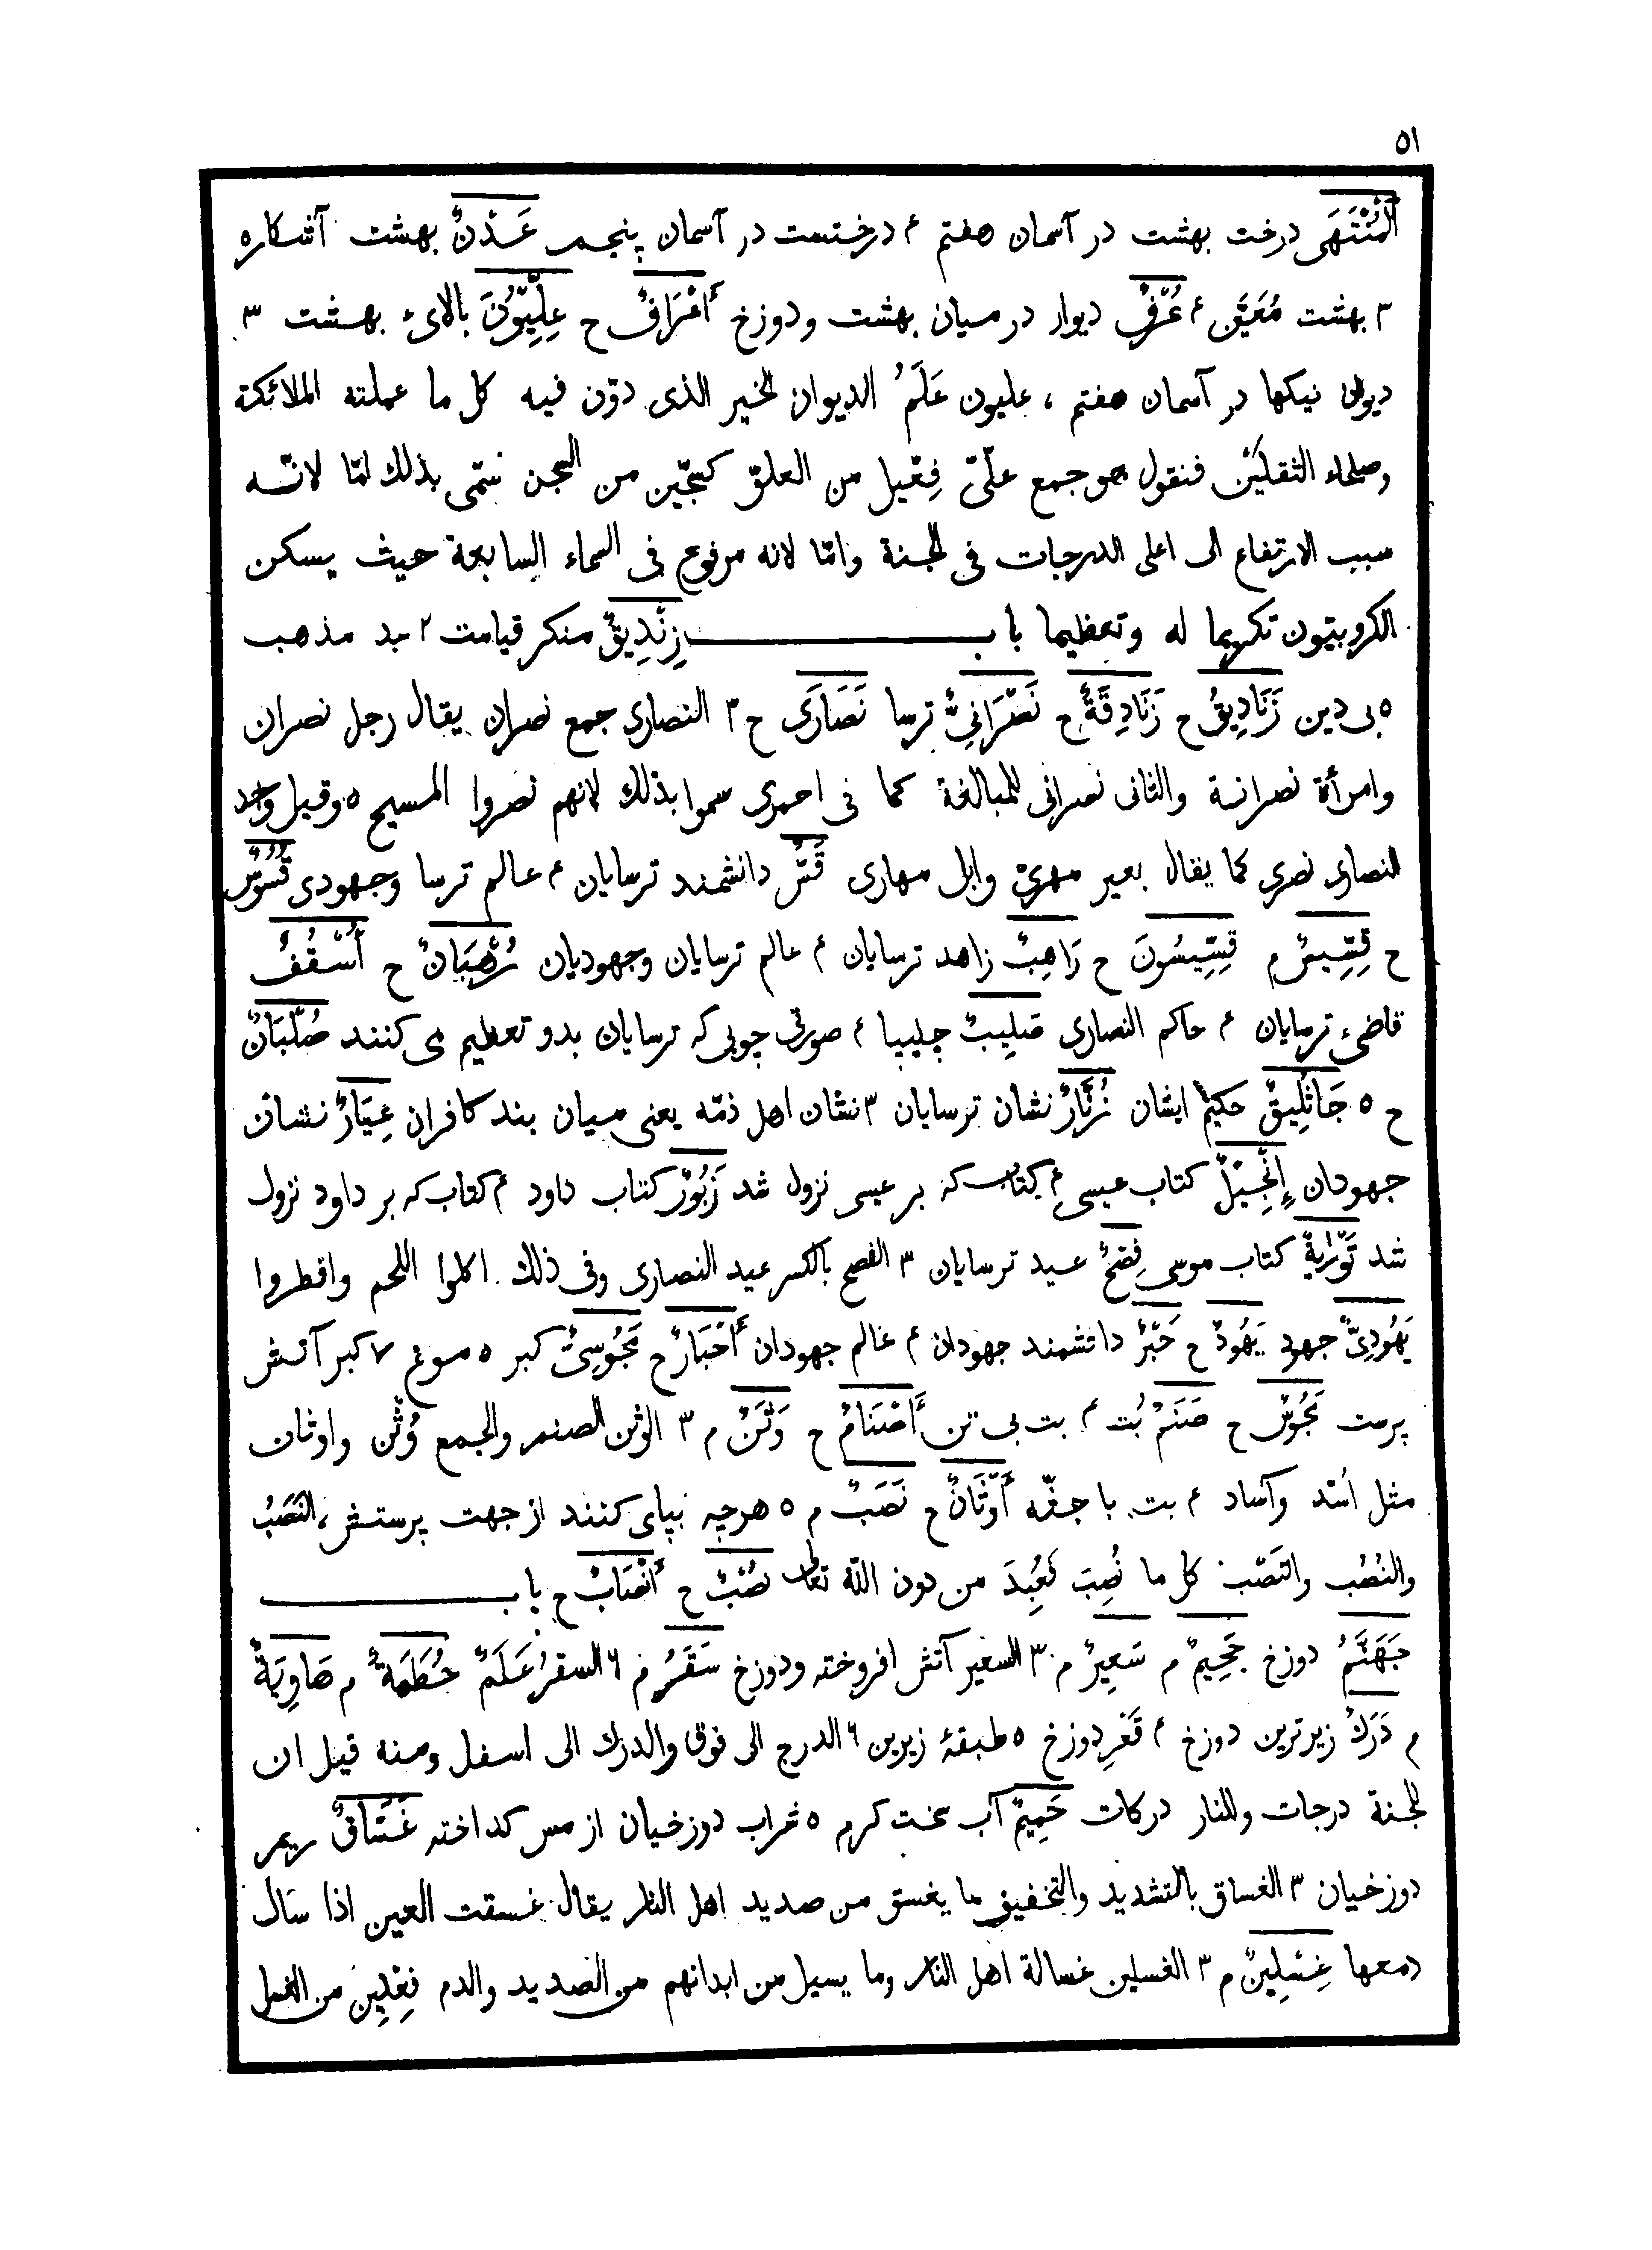 ٥١
اَلْمُنْتَهَى درخت بهشت در آسمان هفتم ۴ درختست در آسمان پنجم عَدْنٌ بهشت آشکاره
۳ بهشت مُعَيَّن ۴ عُرْفٌ ديوار در ميان بهشت ودوزخ أَعْرَافٌ ح عِلِّيُّونَ بالاىء بهشت ۳
ديوان نيکها در آسمان هفتم ، عليون عَلَمُ الديوان الخير الذى دوّن فيه کل ما عملته الملائکة
وصلحاء الثقلَيْن فنقول هو جمع علّىّ فِعّيل من العلوّ کسجّين من السجن سمّى بذلك امّا لانّه
سبب الارتفاع الى اعلى الدرجات فى الجنة وامّا لانه مرفوع فى السماء السابعة حيث يسکن
الکروبيّون تکريما له وتعظيما باب زِنْدِيقٌ منکر قيامت ۲ بد مذهب
٥ بى دين زَنَادِيقُ ح زَنَادِقَةٌ ح نَصْرَانِىٌّ ترسا نَصَارَى ح ۳ النصارى جمع نصران يقال رجل نصران
وامرأة نصرانة والثانى نصرانى للمبالغة کما فى احمرى سموا بذلك لانهم نصروا المسيح ٥ وقيل واحد
النصارى نصرى کما يقال بعير مهرىّ وابل مهارى قَسٌّ دانشمند ترسايان ۴ عالم ترسا وجهودى قُسُوسٌ
ح قِسِّيسٌ م قِسِّيسُونَ ح رَاهِبٌ زاهد ترسايان ۴ عالم ترسايان وجهوديان رُهْبَانٌ ح أُسْقُفٌ
قاضىء ترسايان ۴ حاکم النصارى صَلِيبٌ چليپا ۴ صورتى چوبى که ترسايان بدو تعظيم مى کنند صُلْبَانٌ
ح ٥ جَاثَلِيقٌ حکيم ايشان زُنَّارٌ نشان ترسايان ۳ نشان اهل ذمّه يعنى ميان بند کافران غِيَارٌ نشان
جهودان إِنْجِيلٌ کتاب عيسى ۴ کتاب که بر عيسى نزول شد زَبُورٌ کتاب داود ۴ کتاب که بر داود نزول
شد تَوْرَاةٌ کتاب موسى فِصْحٌ عيد ترسايان ۳ الفصح بالکسر عيد النصارى وفى ذلك اکلوا اللحم وافطروا
يَهُودِىٌّ جهود يَهُودٌ ح حَبْرٌ دانشمند جهودان ۴ عالم جهودان أَحْبَارٌ ح مَجُوسِىٌّ کبر ٥ موغ ۷ کبر آتش
پرست مَجُوسٌ ح صَنَمٌ بُت ۴ بت بى تن أَصْنَامٌ ح وَثَنٌ م ۳ الوثن الصنم والجمع وُثْن واوثان
مثل اُسْد وآساد ۴ بت با جثّه أَوْثَانٌ ح نَصَبٌ م ٥ هرچه بپاى کنند از جهت پرستش ، النَصَبُ
والنُصُب والنَصْب کل ما نُصِبَ فَعُبِدَ من دون الله تعالى نُصُبٌ ح أَنْصَابٌ ح باب
جَهَنَّمُ دوزخ جَحِيمٌ م سَعِيرٌ م ۳ السعير آتش افروخته ودوزخ سَقَرُ م ۶ السقرُ عَلَمٌ حُطَمَةٌ م هَاوِيَةٌ
م دَرَكٌ زيرترين دوزخ ۴ قَعْرِ دوزخ ٥ طبقۀ زيرين ۶ الدرج الى فوق والدرك الى اسفل ومنه قيل ان
للجنة درجات وللنار درکات حَمِيمٌ آب سخت کرم ٥ شراب دوزخيان از مس کداخته غَسَّاقٌ ريم
دوزخيان ۳ الغساق بالتشديد والتخفيف ما يغسق من صديد اهل النار يقال غسقت العين اذا سال
دمعها غِسْلِينٌ م ۳ الغسلين غسالة اهل النار وما يسيل من ابدانهم من الصديد والدم فِعْلِين من الغسل